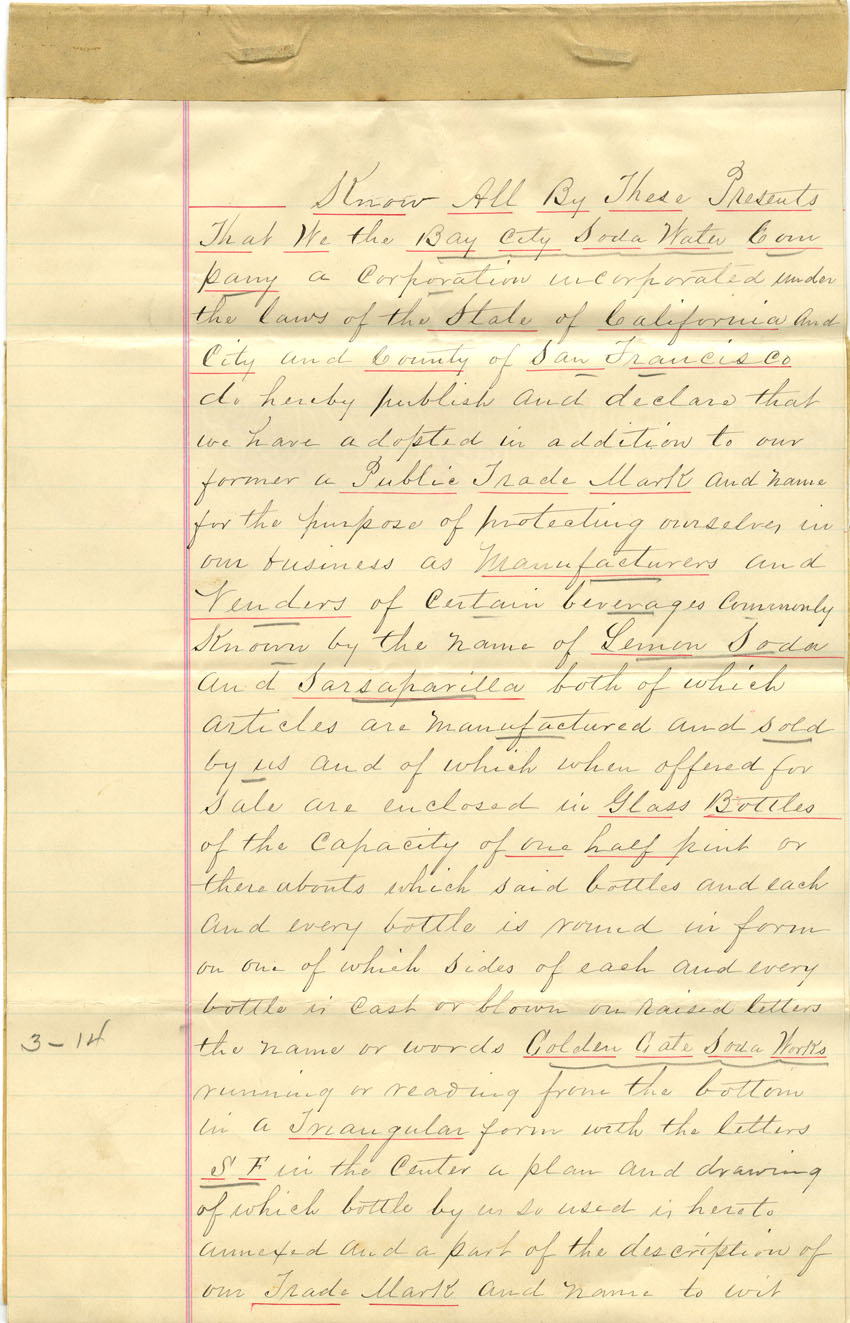 Know All By These Presents
That We the Bay City Soda Water Com
pany a Corporation incorporated under
the laws of the State of California and
City and County of San Francisco
do hereby publish and declare that
we have adopted in addition to our
former a Public Trade Mark and name
for the purpose of protecting ourselves in
our business as Manufacturers and
Venders of Certain beverages Commonly
Known by the name of Lemon Soda
and Sarsaparilla both of which
articles are manufactured and sold
by us and of which when offered for
sale are enclosed in Glass Bottles
of the Capacity of one half pint or
thereabouts which said bottles and each
and every bottle is round in form
on one of which sides of each and every
bottle is Cast or blown on raised letters
3-14
the name or words Golden Gate Soda Works
running or reading from the bottom
in a Triangular form with the letters
S F in the Center a plan and drawing
of which bottle by us so used is hereto
annexed and a part of the description of
our Trade Mark and name to wit